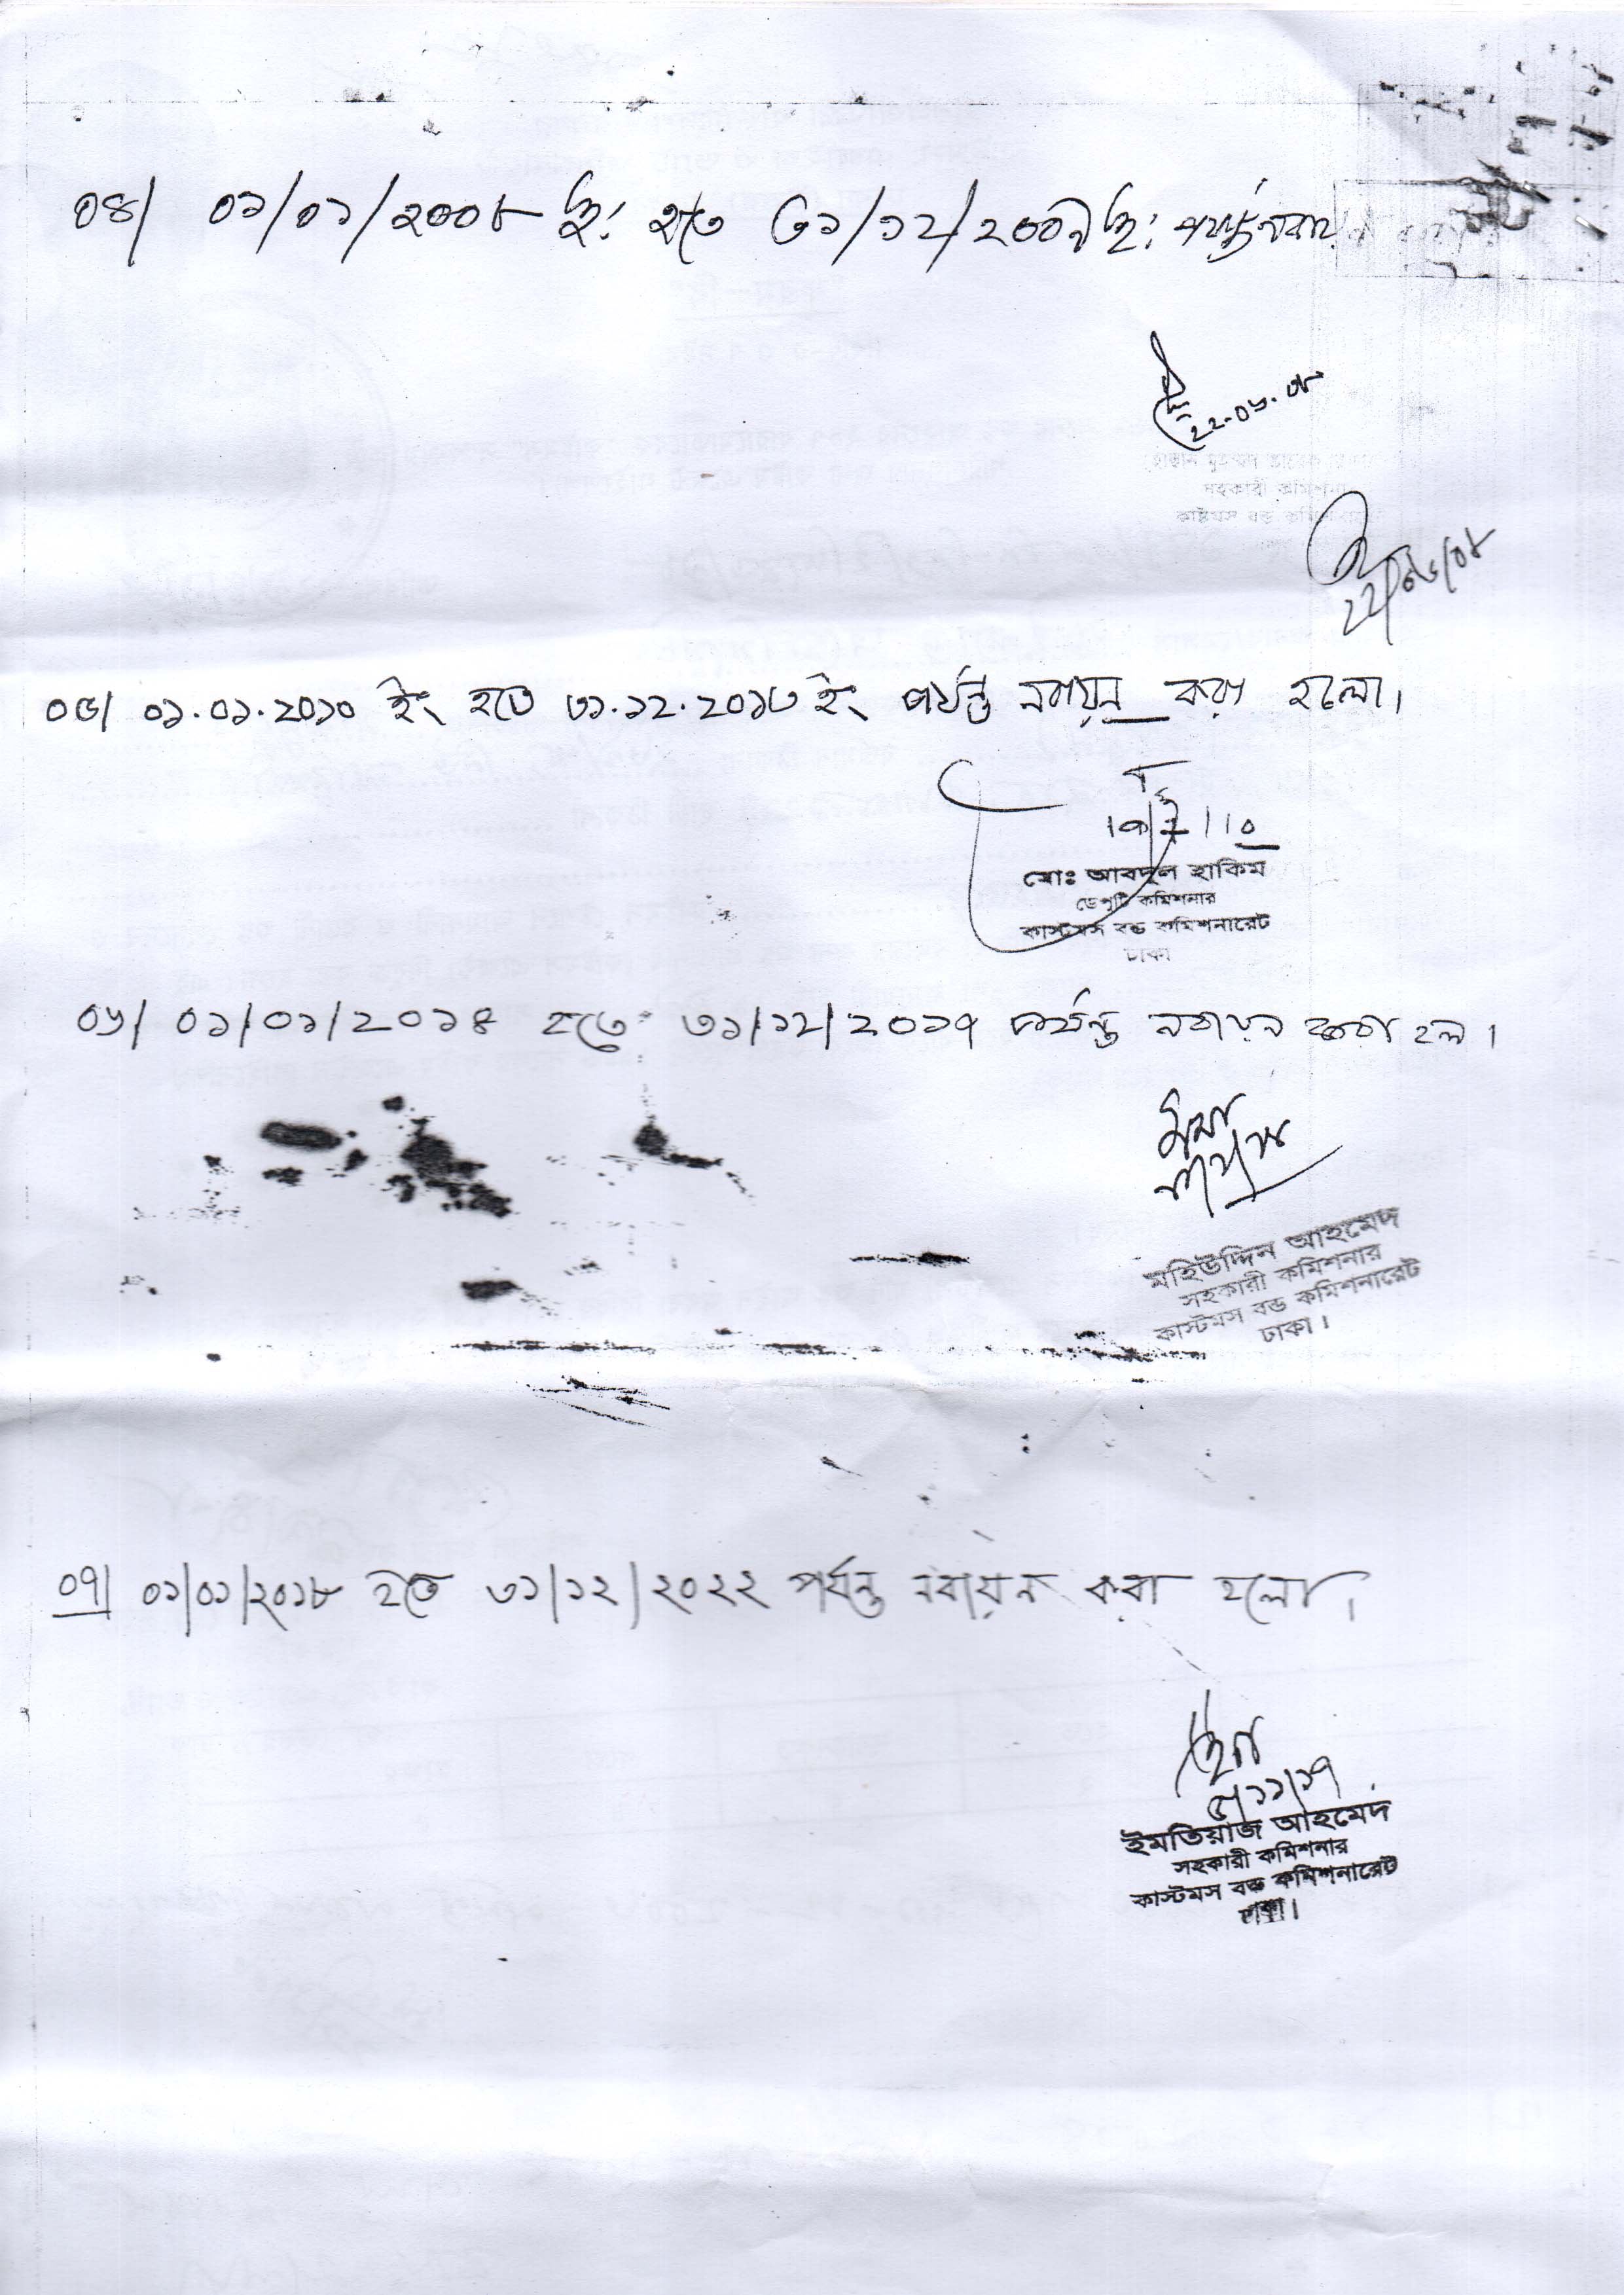 ০৪/ ০১/০১/২০০৮ ইং হতে ৩১/১২/২০০৯ ইং পর্যন্ত নবায়ন
২২.০৬.০৮
সহকারী কমিশনার
কাষ্টমস বন্ড কমিশনারেট
২২/০৬/০৮
০৫/ ০১.০১.২০১০ ইং হতে ৩১.১২.২০১৩ ইং পর্যন্ত নবায়ন করা হলো।
মোঃ আবদুল হাকিম
ডেপুটি কমিশনার
কাস্টমস বন্ড কমিশনারেট
ঢাকা
০৬/ ০১/০১/২০১৪ হতে ৩১/১২/২০১৭ পর্যন্ত নবায়ন করা হল।
মহিউদ্দিন আহমেদ
সহকারী কমিশনার
কাস্টমস বন্ড কমিশনারেট
ঢাকা।
০৭/ ০১/০১/২০১৮ হতে ৩১/১২/২০২২ পর্যন্ত নবায়ন করা হলো।
৫/১১/১৭
ইমতিয়াজ আহমেদ
সহকারী কমিশনার
কাস্টমস বন্ড কমিশনারেট
ঢাকা।